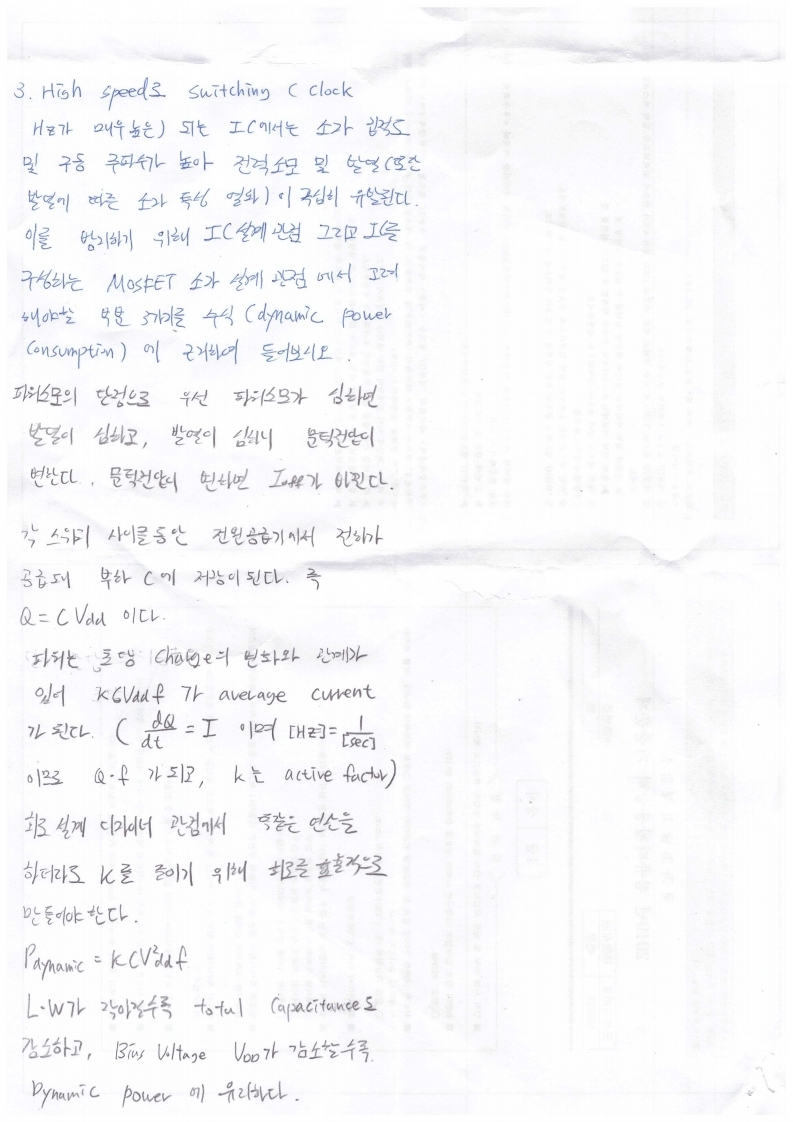 3. High speed로 switching ( clock
Hz가 매우 높은) 되는 IC에서는 소자 집적도
및 구동 주파수가 높아 전력소모 및 발열(또한
발열에 따른 소자 특성 열화)이 극심히 유발된다.
이를 방지하기 위해 IC설계 관점 그리고 IC를
구성하는 MOSFET 소자 설계 관점에서 고려
해야할 부분 3가지를 수식 (dynamic power
consumption) 에 근거하여 들어보시오.
파워소모의 단점으로 우선 파워소모가 심하면
발열이 심하고, 발열이 심하니 문턱전압이
변한다. 문턱전압이 변하면 Ioff가 바뀐다.
각 스위치 사이클동안 전원공급기에서 전하가
공급되 부하 C에 저장이 된다. 즉
Q = CVdd 이다.
파워는 초당 Charge의 변화와 관계가
있어 KCVddf 가 average current
가 된다. ( dQ/dt = I 이며 [Hz]= 1/[sec]
이므로 Q·f 가 되고, k는 active factor)
회로 설계 디자이너 관점에서 똑같은 연산을
하더라도 K를 줄이기 위해 회로를 효율적으로
만들어야 한다.
Pdynamic = KCV²ddf
L·W가 작아질수록 total capacitance도
감소하고, Bias Voltage VDD가 감소할수록
Dynamic power 에 유리하다.